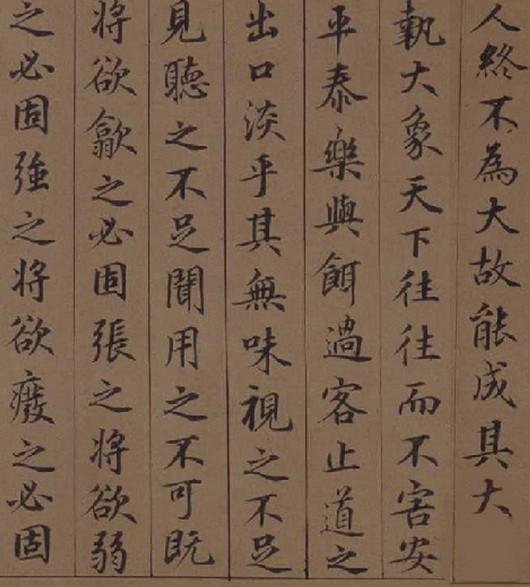 人終不為大故能成其大
執大象天下往往而不害安
平泰樂與餌過客止道之
出口淡乎其無味視之不足
見聽之不足聞用之不可既
将欲歙之必固張之将欲弱
之必固強之将欲癈之必固